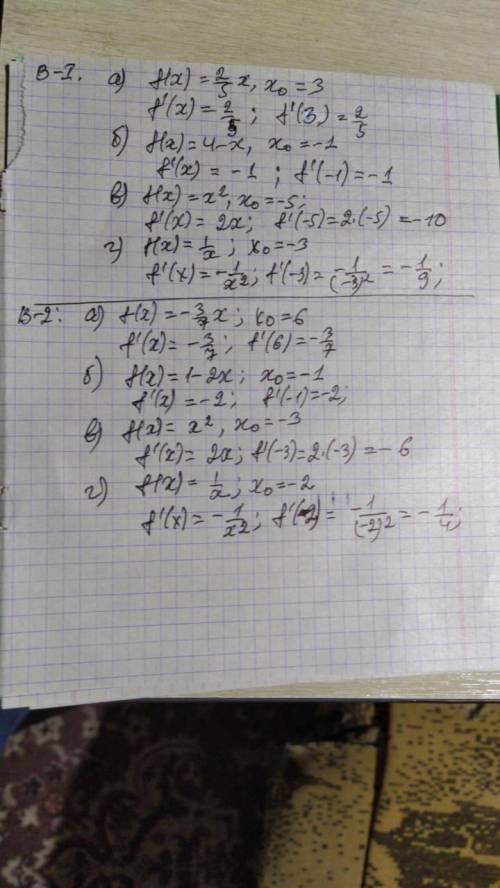 В-I. а) f(x) = 2/5 x, x₀ = 3
f'(x) = 2/5 ; f'(3) = 2/5
б) f(x) = 4-x, x₀ = -1
f'(x) = -1 ; f'(-1) = -1
в) f(x) = x², x₀ = -5;
f'(x) = 2x; f'(-5) = 2·(-5) = -10
г) f(x) = 1/x ; x₀ = -3
f'(x) = -1/x²; f'(-3) = -1/(-3)² = -1/9;
В-2: а) f(x) = -3/7 x; x₀ = 6
f'(x) = -3/7; f'(6) = -3/7
б) f(x) = 1-2x; x₀ = -1
f'(x) = -2; f'(-1) = -2;
в) f(x) = x², x₀ = -3
f'(x) = 2x; f'(-3) = 2·(-3) = -6
г) f(x) = 1/x; x₀ = -2
f'(x) = -1/x²; f'(-2) = -1/(-2)² = -1/4;